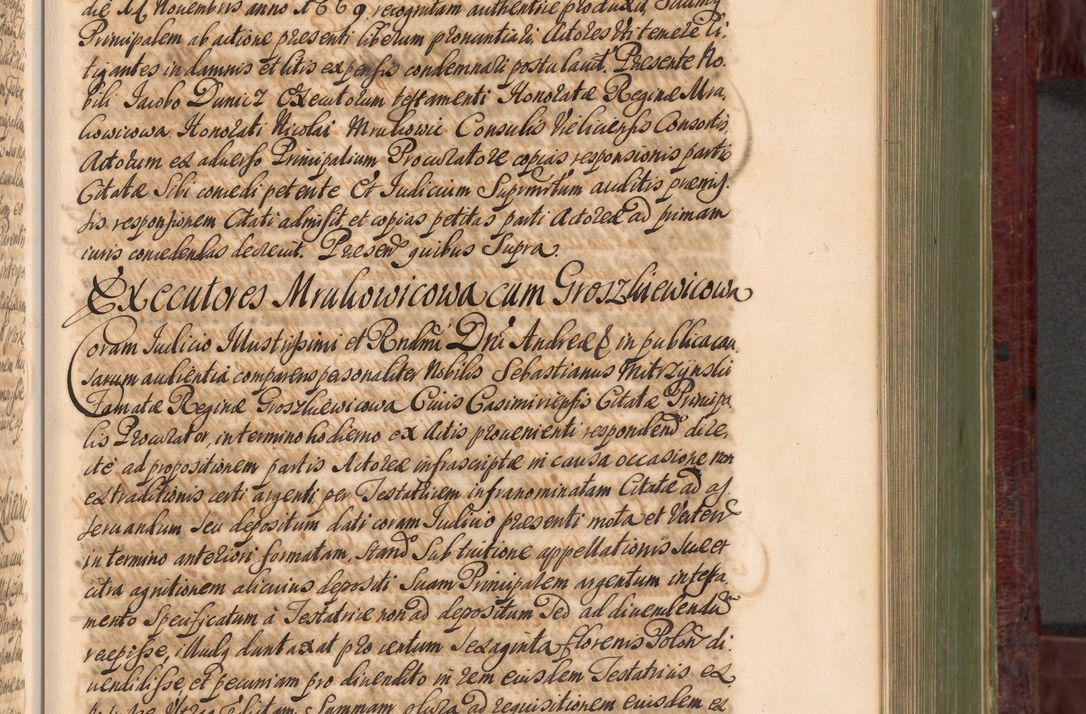 die 14 Novembris anno 1669 recognitam authentice produxit Suamq
Principalem ab actione presenti liberum pronuntiari Actores vti temere li
tigantes in damnis et litis expensis condemnari postulauit. Presente No
bili Jacobo Dunicz Executorum testamenti Honoratæ Reginæ Mra
kowicowa, Honorati Nicolai Mrukowic Consulis Vieliciensis Consortis,
Actorum ex aduerso Principalium Procuratore copias responsionis parti
Citatæ Sibi concedi petente Et Iudicium Suprmetum auditis præmis
sis responsionem Citati admisit et copias petitas parti Actoreæ ad primam
iuris concedendas decreuit. Presen quibus Supra.
Executores Mrukowicowa cum Groszkiewicowa
Coram Iudicio Illustrissimi et Rndmi Dni Andreæ & in publica cau
sarum audientia comparens personaliter Nobilis Sebastianus Mitrzynski
Famatæ Reginæ Groszkiewicowa Ciuis Casimiriensis Citatæ Principa
lis Procurator, in termino hodierno ex Actis prouenienti respondend dire
cte ad propositionem partis Actoreæ infrascriptæ in causa occasione non
extraditionis certi argenti per Testatricem infranominatam Citatæ ad as
seruandum seu depositum dati coram Iudicio presenti mota et Verten
in termino anteriori formatam, stand Sub tuitione appellationis suæ et
citra agnitionem alicuius depositi Suam Principalem argentum in testa
mento Specificatum à Testatrice non ad depositum Sed ad diuendend
recepisse, illudq duntaxat pro centum Sexaginta florenis Polon di
uendidisse, et pecuniam pro diuendito in rem eiusdem Testatricis ex
Summam plura ad requisitionem eiusdem ex